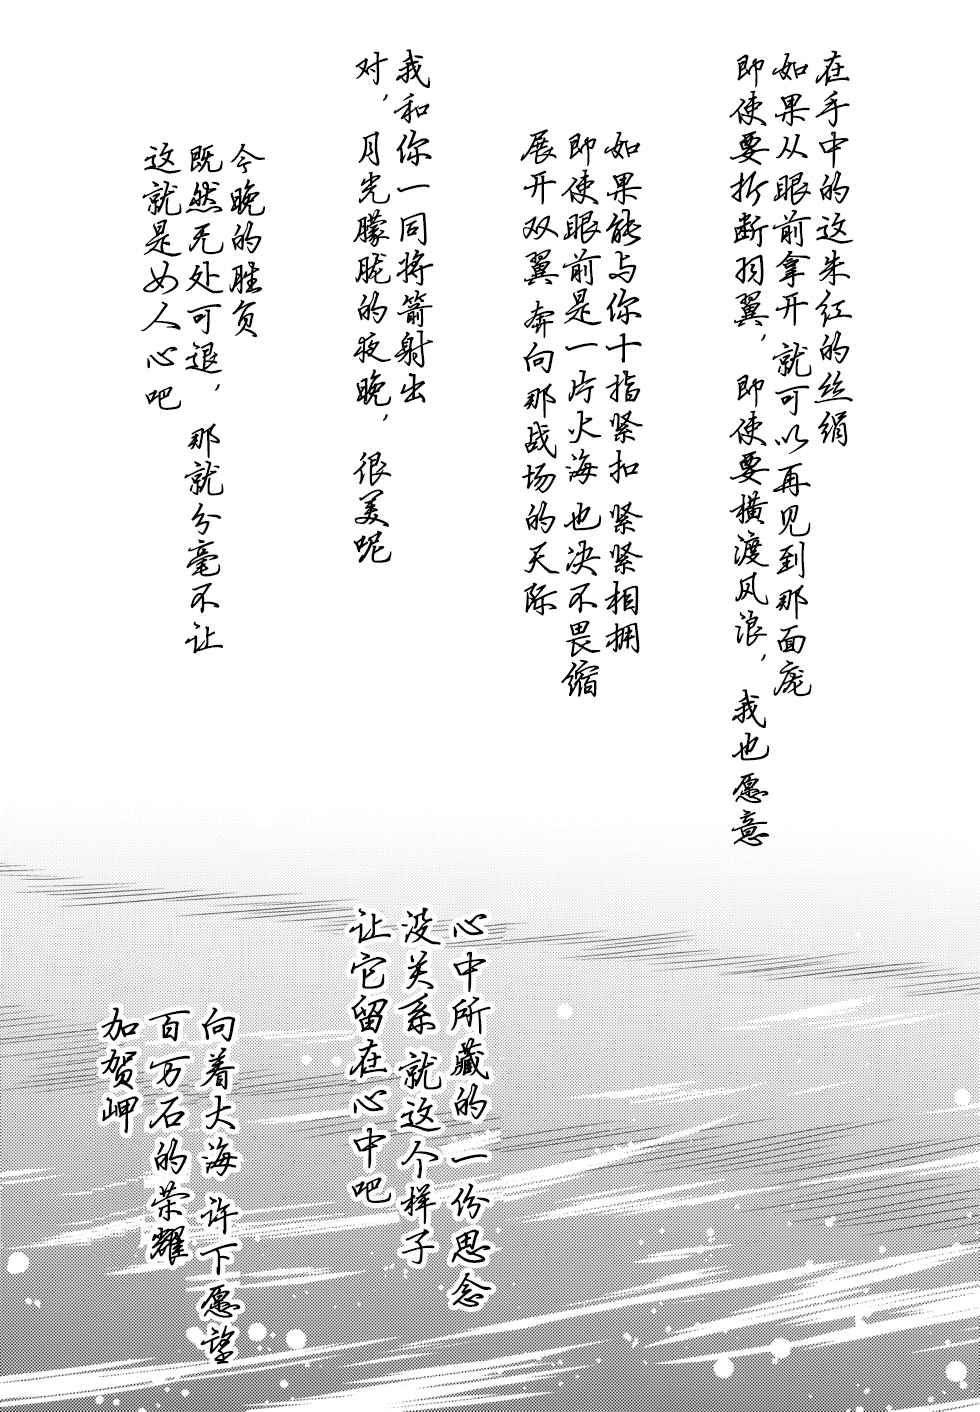 在手中的这朱红的丝绢
如果从眼前拿开 就可以再见到那面庞
即使要折断羽翼，即使要横渡风浪，我也愿意
如果能与你十指紧扣 紧紧相拥
即使眼前是一片火海 也决不畏缩
展开双翼 奔向那战场的天际
我和你一同将箭射出
对，月光朦胧的夜晚，很美呢
今晚的胜负
既然无处可退，那就分毫不让
这就是女人心吧
心中所藏的一份思念
没关系 就这个样子
让它留在心中吧
向着大海 许下愿望
百万石的荣耀
加贺岬